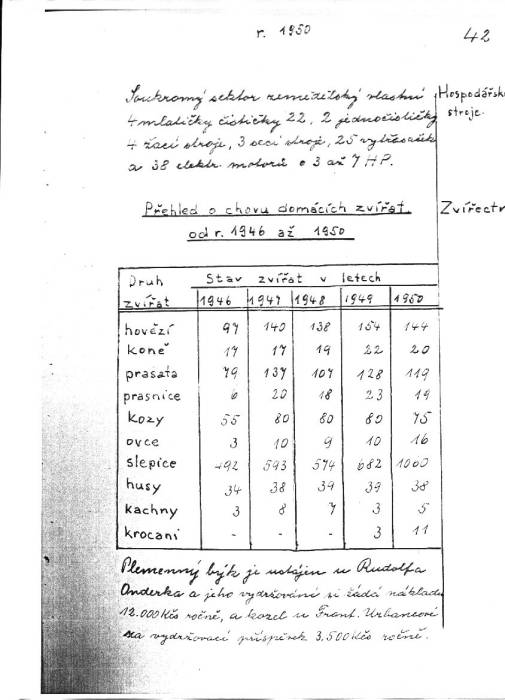 r. 1950
42
Soukromý sektor zemědělský vlastní
4 mlatičky čističky 22, 2 jednočističky
4 žací stroje, 3 secí stroje, 25
a 38 elektr. motorů o 3 až 7 HP.
Hospodářsk
stroje.
Přehled o chovu domácích zvířat
od r. 1946 až 1950
Zvířectv
Druh zvířat Stav zvířat v letech
1946 1947 1948 1949 1950
hovězí 97 140 138 154 144
koně 17 17 19 22 20
prasata 79 137 107 128 119
prasnice 6 20 18 23 19
kozy 55 80 80 80 75
ovce 3 10 9 10 16
slepice 492 593 574 682 1060
husy 34 38 39 39 38
kachny 3 8 7 3 5
krocani - - - 3 11
Plemenný býk je ustájen u Rudolfa
Onderka a jeho vydržování si žádá nákladu
12.000 Kčs ročně, a kozel u Frant. Urbancové
za vydržovací příspěvek 3.500 Kčs ročně.